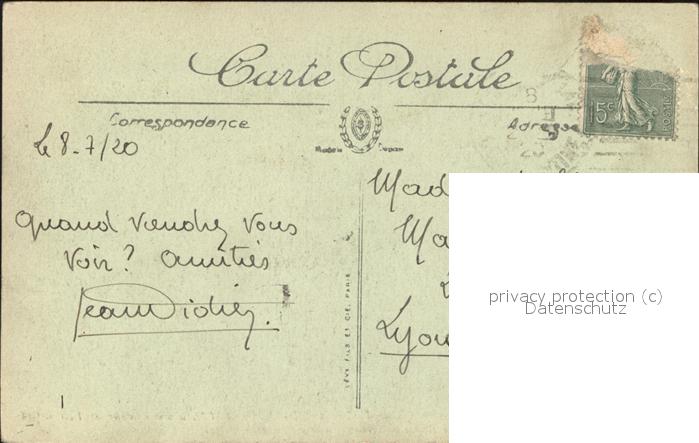 Carte Postale
Correspondance
Adresse
15c
POSTES
Le 8-7/20
Quand viendrez vous
voir? Amitiés
Jean Didier.
Mad
Ma
Lyon
LÉVY FILS ET CIE, PARIS
privacy protection (c)
Datenschutz